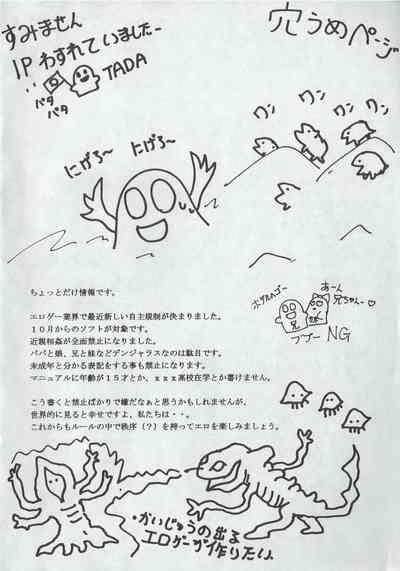 すみません
1Pわすれていましたー
パタ
パタ
TADA
穴うめページ
ワン
ワン
ワン
ワン
にげろ〜 にげろ〜
ちょっとだけ情報です。
エロゲー業界で最近新しい自主規制が決まりました。
１０月からのソフトが対象です。
近親相姦が全面禁止になりました。
パパと娘、兄と妹などデンジャラスなのは駄目です。
未成年と分かる表記をする事も禁止になります。
マニュアルに年齢が１５才とか、ｘｘｘ高校在学とか書けません。
こう書くと禁止ばかりで嫌だなぁと思うかもしれませんが、
世界的に見ると幸せですよ、私たちは・・。
これからもルールの中で秩序（？）を持ってエロを楽しみましょう。
あーん
兄ちゃ〜ん♡
兄
NG
・かいじゅうの出る
エロゲーが作りたい。